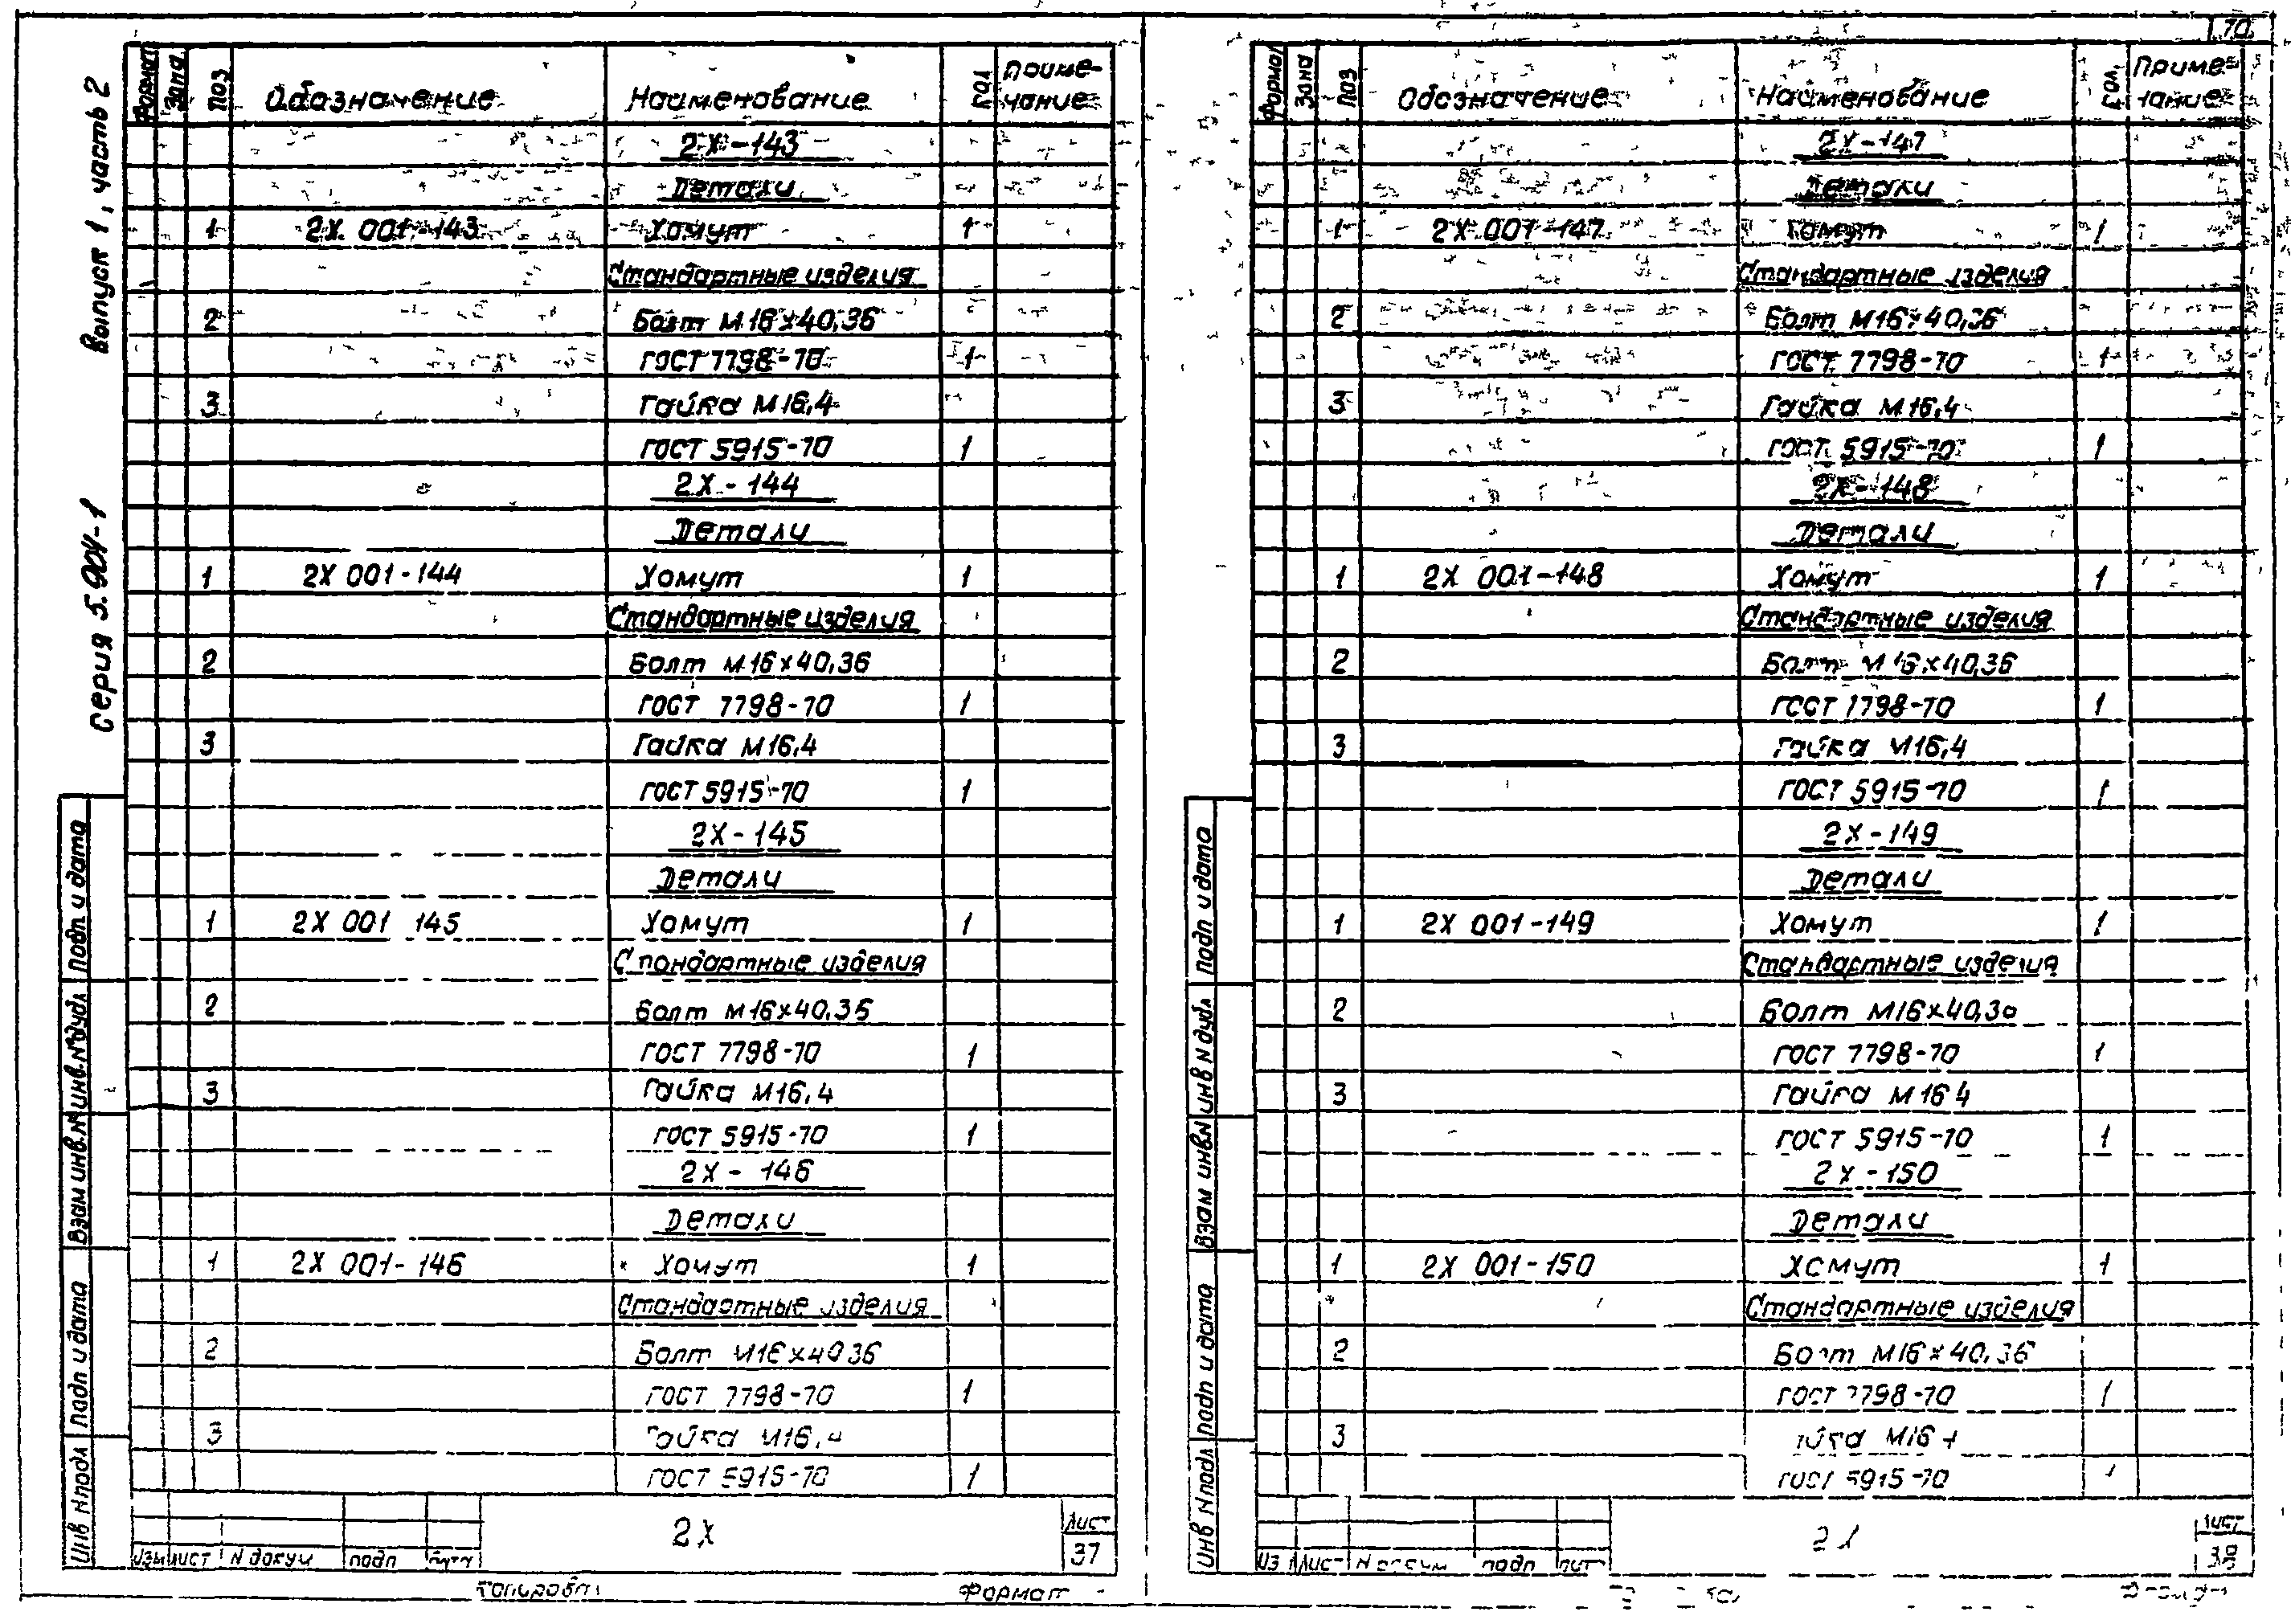 70
Выпуск 1, часть 2
серия 5.904-1
Формат Зона Поз Обозначение Наименование Кол Приме-
чание
2Х-143
Детали
1 2Х 001-143 Хомут 1
Стандартные изделия
2 Болт М16×40,36
ГОСТ 7798-70 1
3 Гайка М16,4
ГОСТ 5915-70 1
2Х-144
Детали
1 2Х 001-144 Хомут 1
Стандартные изделия
2 Болт М16×40,36
ГОСТ 7798-70 1
3 Гайка М16,4
ГОСТ 5915-70 1
2Х-145
Детали
1 2Х 001 145 Хомут 1
Стандартные изделия
2 Болт М16×40,36
ГОСТ 7798-70 1
3 Гайка М16,4
ГОСТ 5915-70 1
2Х-146
Детали
1 2Х 001-146 Хомут 1
Стандартные изделия
2 Болт М16×40 36
ГОСТ 7798-70 1
3 Гайка М16,4
ГОСТ 5915-70 1
Подп и дата
Инв.№дубл
Взам инв.№
Подп и дата
Инв №подл
Изм Лист № докум Подп Дата
2Х
Лист
37
Копировал Формат
Формат Зона Поз Обозначение Наименование Кол. Приме-
чание
2Х-147
Детали
1 2Х 001-147 Хомут 1
Стандартные изделия
2 Болт М16×40,36
ГОСТ 7798-70 1
3 Гайка М16,4
ГОСТ 5915-70 1
2Х-148
Детали
1 2Х 001-148 Хомут 1
Стандартные изделия
2 Болт М16×40,36
ГОСТ 7798-70 1
3 Гайка М16,4
ГОСТ 5915-70 1
2Х-149
Детали
1 2Х 001-149 Хомут 1
Стандартные изделия
2 Болт М16×40,36
ГОСТ 7798-70 1
3 Гайка М16 4
ГОСТ 5915-70 1
2Х-150
Детали
1 2Х 001-150 Хомут 1
Стандартные изделия
2 Болт М16×40,36
ГОСТ 7798-70 1
3 Гайка М16 4
ГОСТ 5915-70 1
Подп и дата
Инв №дубл
Взам инв№
Подп и дата
Инв №подл
Изм Лист № докум Подп Дата
2Х
Лист
38